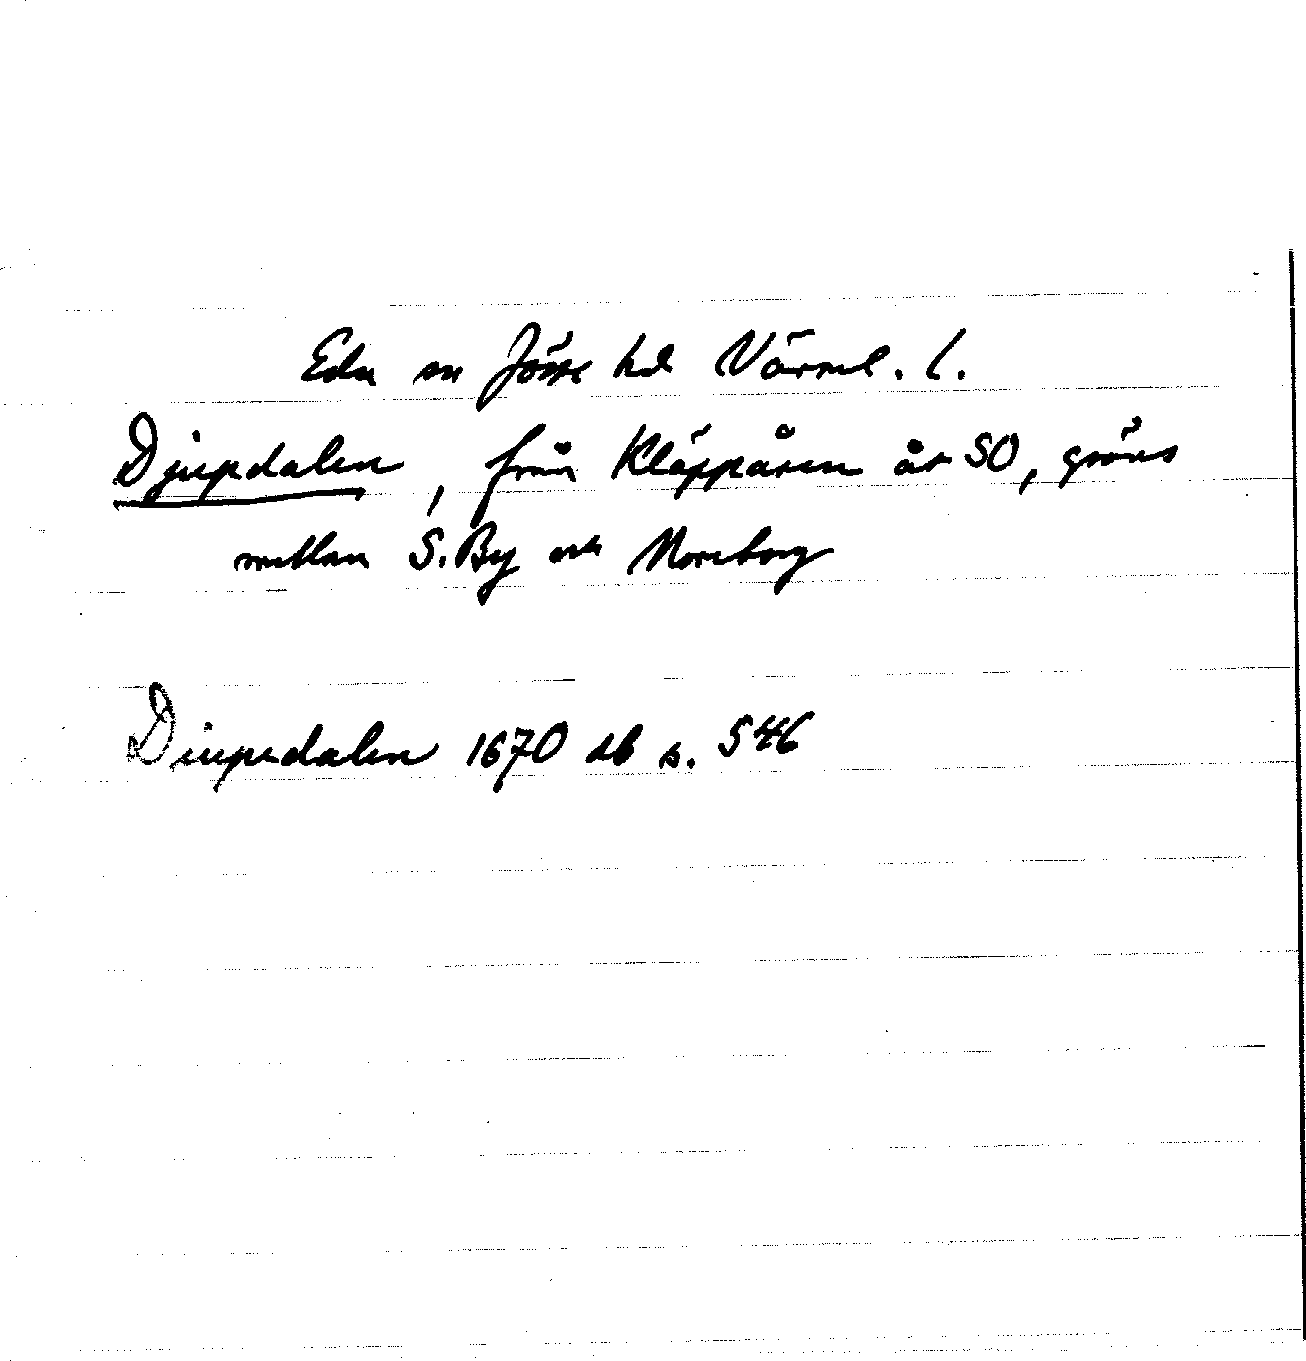 Eda sn Jösse hd Värml. l.
Djupdalen, från Kläppåsen åt SO, gräns
mellan S. By och Moreborg
Diupedalen 1670 db s. 546